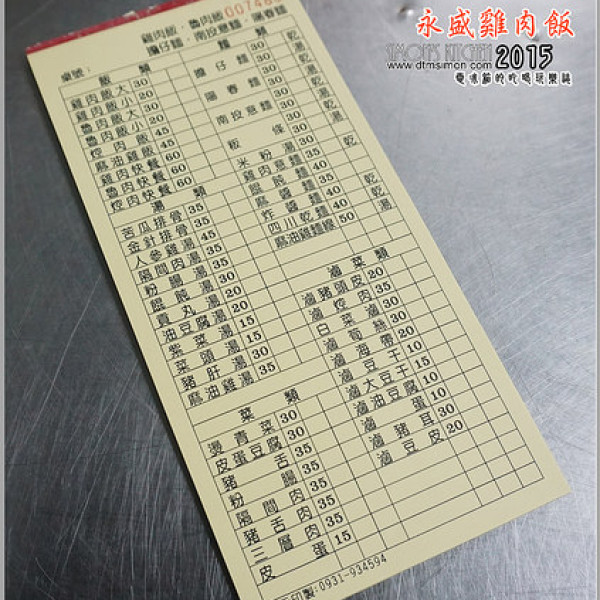 永盛雞肉飯
SIMON'S KITCHEN 2015
www.dtmsimon.com
雞肉飯．魯肉飯
擔仔麵．南投意麵．陽春麵
桌號：
飯類
雞肉飯大 30
雞肉飯小 20
魯肉飯大 30
魯肉飯小 20
焢肉飯 45
麻油雞飯 45
雞肉快餐 60
魯肉快餐 60
焢肉快餐 60
湯類
苦瓜排骨 35
金針排骨 35
人參雞湯 45
隔間肉湯 35
粉腸湯 35
餛飩湯 30
貢丸湯 20
油豆腐湯 20
紫菜湯 15
菜頭湯 15
豬肝湯 30
麻油雞湯 35
菜類
燙青菜 30
皮蛋豆腐 30
豬舌 35
粉腸 35
隔間肉 35
豬舌肉 35
三層肉 35
皮蛋 15
麵類
擔仔麵 30 乾 湯
陽春麵 30 乾 湯
南投意麵 30 乾 湯
粄條 30 乾 湯
米粉湯 30
雞肉意麵 35 乾 湯
餛飩麵 40
麻醬麵 35
炸醬麵 40
四川乾麵 40 乾
麻油雞麵線 50 湯
滷菜類
滷豬頭皮 20
滷焢肉 35
白菜滷 30
滷筍絲 30
滷海帶 20
滷豆干 10
滷大豆干 15
滷油豆腐 10
滷蛋 10
滷豬耳 30
滷豆皮 20
印製:0931-934594